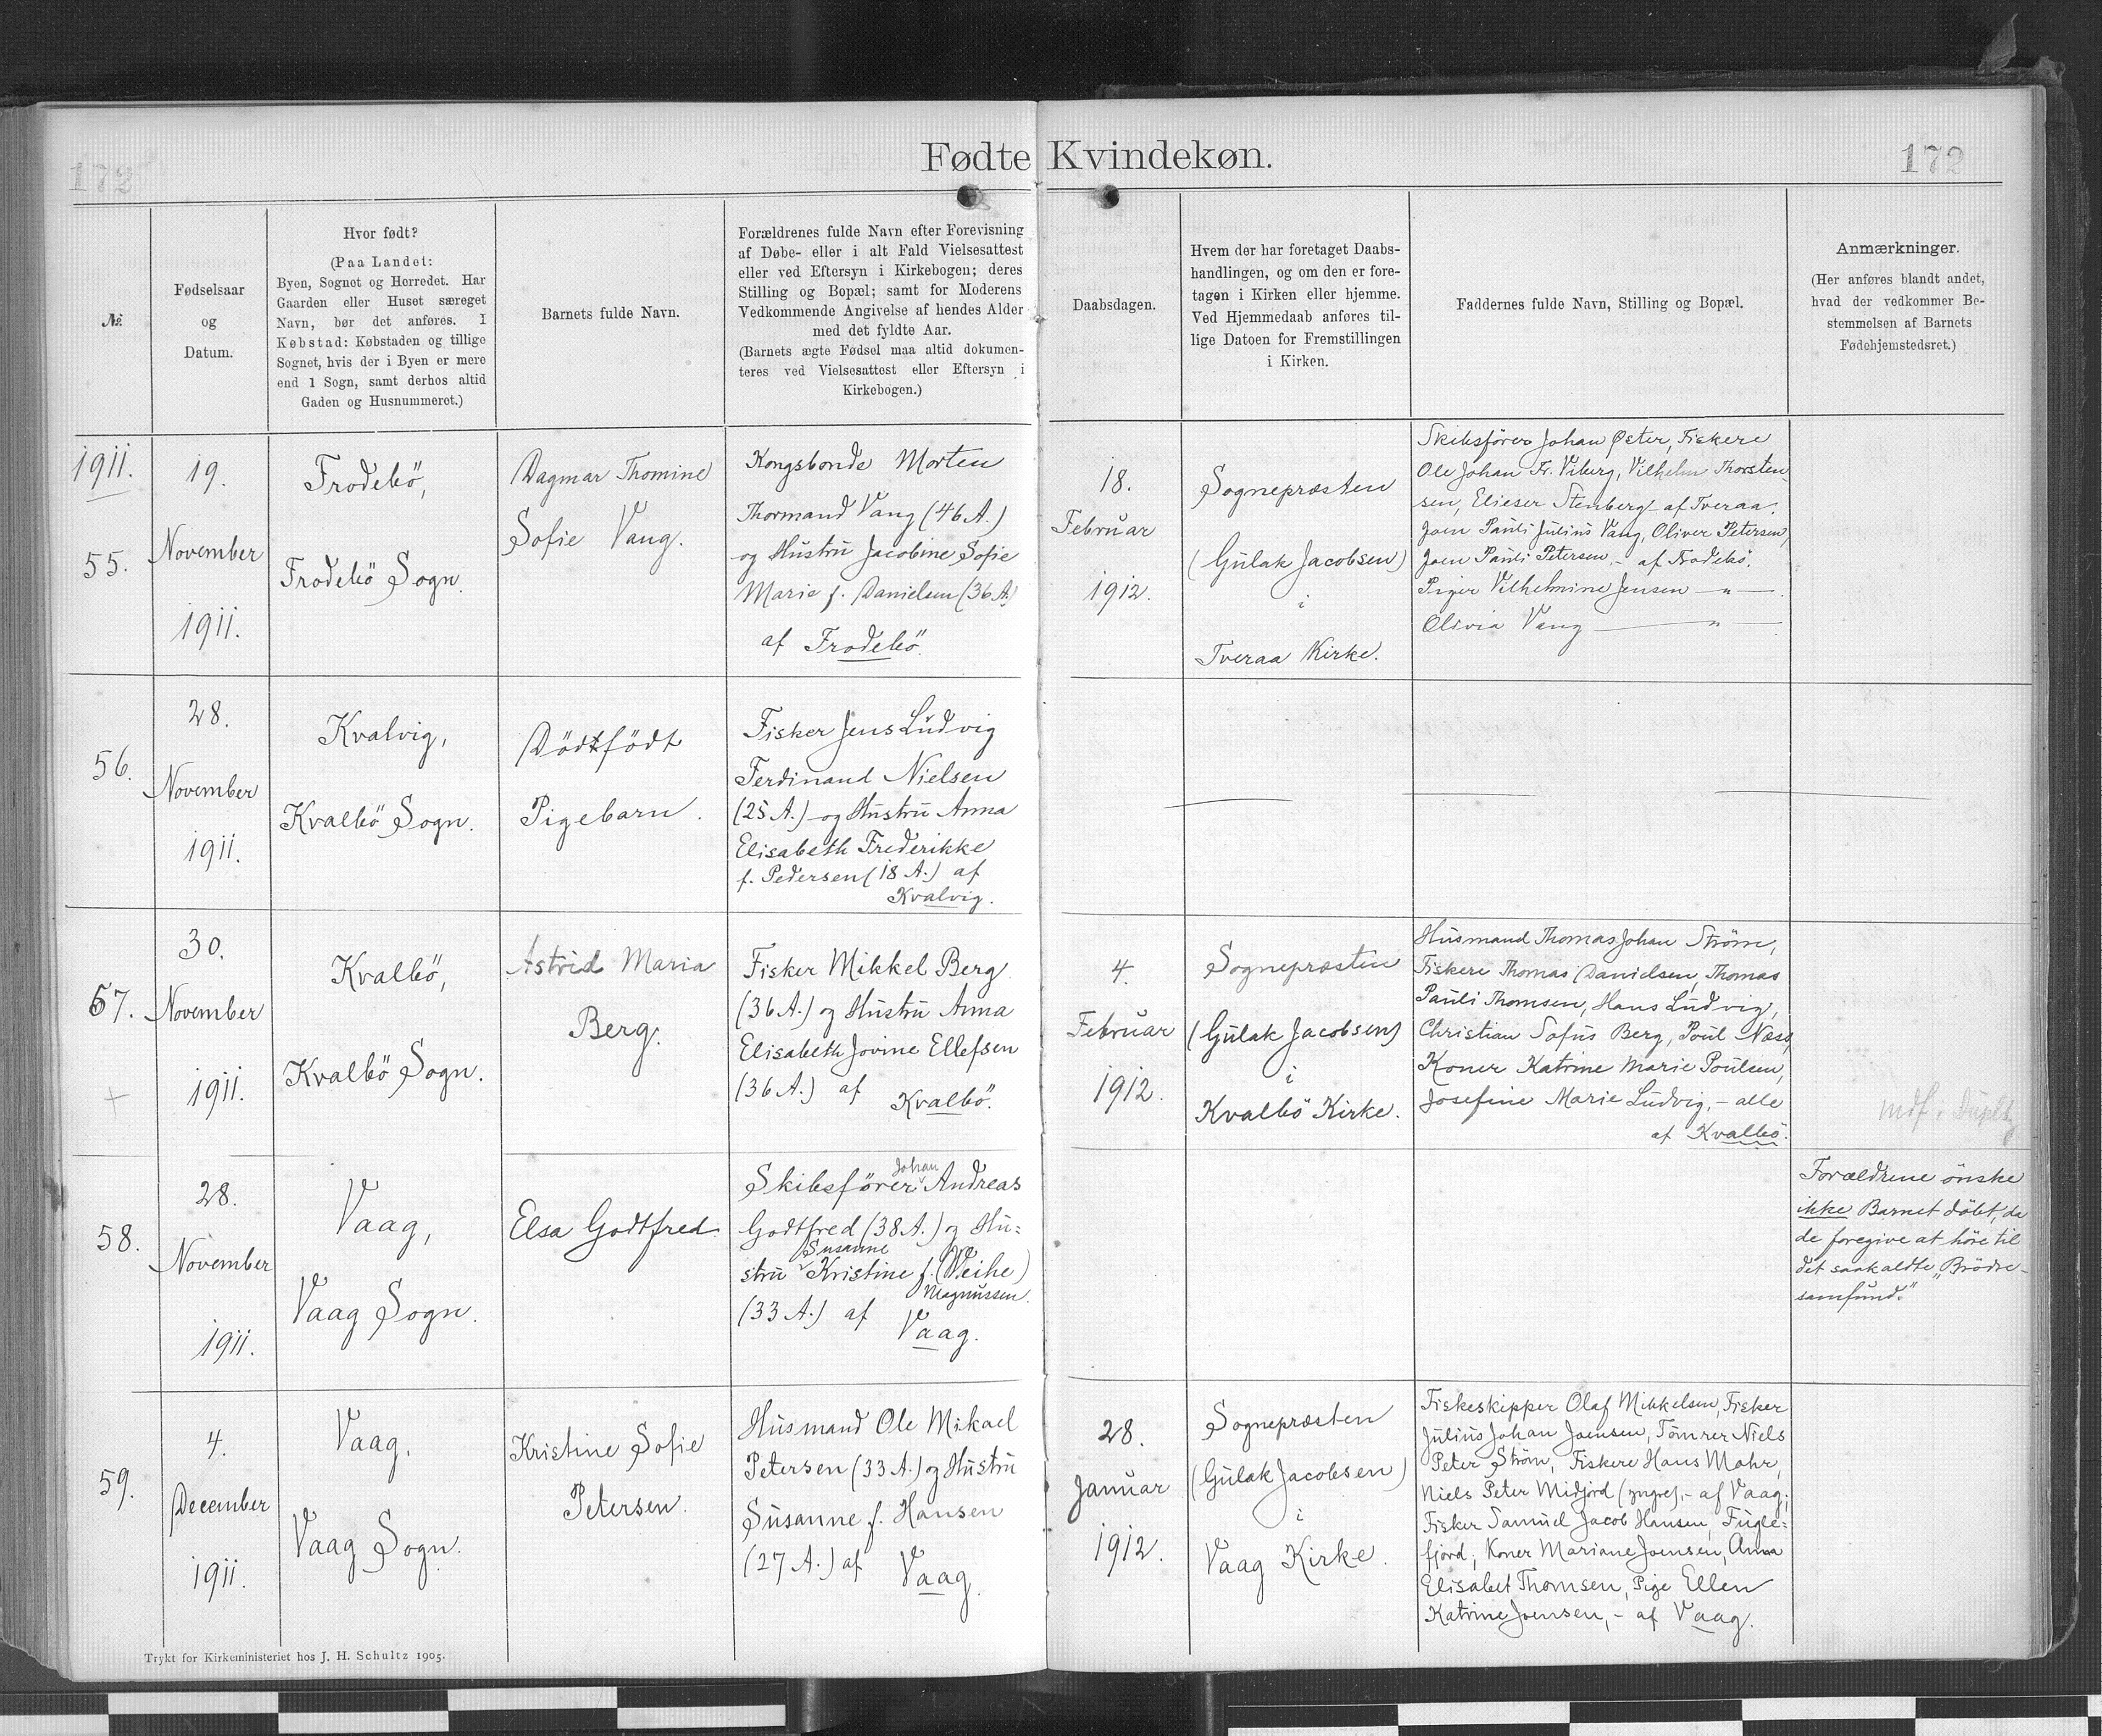 Fødte Kvindekøn.
172
172
№
Fødselsaar
og
Datum.
Hvor født?
(Paa Landet:
Byen, Sognet og Herredet. Har
Gaarden eller Huset særeget
Navn, bør det anføres. I
Købstad: Købstaden og tillige
Sognet, hvis der i Byen er mere
end 1 Sogn, samt derhos altid
Gaden og Husnummeret.)
Barnets fulde Navn.
Forældrenes fulde Navn efter Forevisning
af Døbe- eller i alt Fald Vielsesattest
eller ved Eftersyn i Kirkebogen; deres
Stilling og Bopæl; samt for Moderens
Vedkommende Angivelse af hendes Alder
med det fyldte Aar.
(Barnets ægte Fødsel maa altid dokumen-
teres ved Vielsesattest eller Eftersyn i
Kirkebogen.)
Daabsdagen.
Hvem der har foretaget Daabs-
handlingen, og om den er fore-
tagen i Kirken eller hjemme.
Ved Hjemmedaab anføres til-
lige Datoen for Fremstillingen
i Kirken.
Faddernes fulde Navn, Stilling og Bopæl.
Anmærkninger.
(Her anføres blandt andet,
hvad der vedkommer Be-
stemmelsen af Barnets
Fødehjemstedsret.)
1911.
55.
19.
November
1911.
Frodebö,
Frodebö Sogn.
Dagmar Thomine
Sofie Vang.
Kongsbonde Morten
Thormand Vang (46 A.)
og Hustru Jacobine Sofie
Marie f. Danielsen (36 A.)
af Frodebö.
18.
Februar
1912.
Sognepræsten
(Gulak Jacobsen)
i
Tveraa Kirke.
Skibsförer Johan Øster, Fiskere
Ole Johan Fr. Viberg, Vilhelm Thorsten-
sen, Elieser Stenberg - af Tveraa.
Joen Pauli Julius Vang, Oliver Petersen,
Joen Pauli Petersen, - af Frodebö.
Piger Vilhelmine Jensen — „ —
Olivia Vang — „ —
56.
28.
November
1911.
Kvalvig,
Kvalbö Sogn.
Dödtfödt
Pigebarn.
Fisker Jens Ludvig
Ferdinand Nielsen
(25 A.) og Hustru Anna
Elisabeth Frederikke
f. Pedersen (18 A.) af
Kvalvig.
57.
30.
November
1911.
Kvalbö,
Kvalbö Sogn.
Astrid Maria
Berg.
Fisker Mikkel Berg
(36 A.) og Hustru Anna
Elisabeth Jovine Ellefsen
(36 A.) af Kvalbö.
4.
Februar
1912.
Sognepræsten
(Gulak Jacobsen)
i
Kvalbö Kirke.
Husmand Thomas Johan Ströme,
Fiskere Thomas Danielsen, Thomas
Pauli Thomsen, Hans Ludvig,
Christian Sofus Berg, Poul Næss,
Koner Katrine Marie Poulsen,
Josefine Marie Ludvig, - alle
af Kvalbö.
58.
28.
November
1911.
Vaag,
Vaag Sogn.
Elsa Godtfred
Johan
Skibsförer Andreas
Godtfred (38 A.) og Hu-
Susanne
stru Kristine f. (Weihe)
Magnussen.
(33 A.) af Vaag.
Forældrene önske
ikke Barnet döbt, da
de foregive at höre til
det saakaldte „Brödre-
samfund."
59.
4.
December
1911.
Vaag,
Vaag Sogn.
Kristine Sofie
Petersen.
Husmand Ole Mikael
Petersen (33 A.) og Hustru
Susanne f. Hansen
(27 A.) af Vaag.
28.
Januar
1912.
Sognepræsten
(Gulak Jacobsen)
i
Vaag Kirke.
Fiskeskipper Olaf Mikkelsen, Fisker
Julius Johan Joensen, Tömrer Niels
Peter Ström, Fiskere Hans Mohr,
Niels Peter Midjord (yngre), - af Vaag;
Fisker Samuel Jacob Hansen, Fugle-
fjord; Koner Mariane Joensen, Anna
Elisabet Thomsen, Pige Ellen
Katrine Joensen, - af Vaag.
Trykt for Kirkeministeriet hos J. H. Schultz 1905.